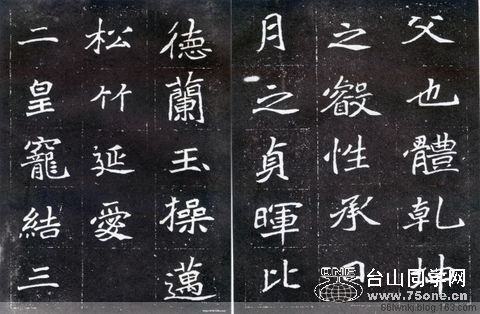 父也體乾坤
之叡性承日
月之貞暉比
德蘭玉操邁
松竹延愛
二皇寵結三
台山同学网
www.75one.cn